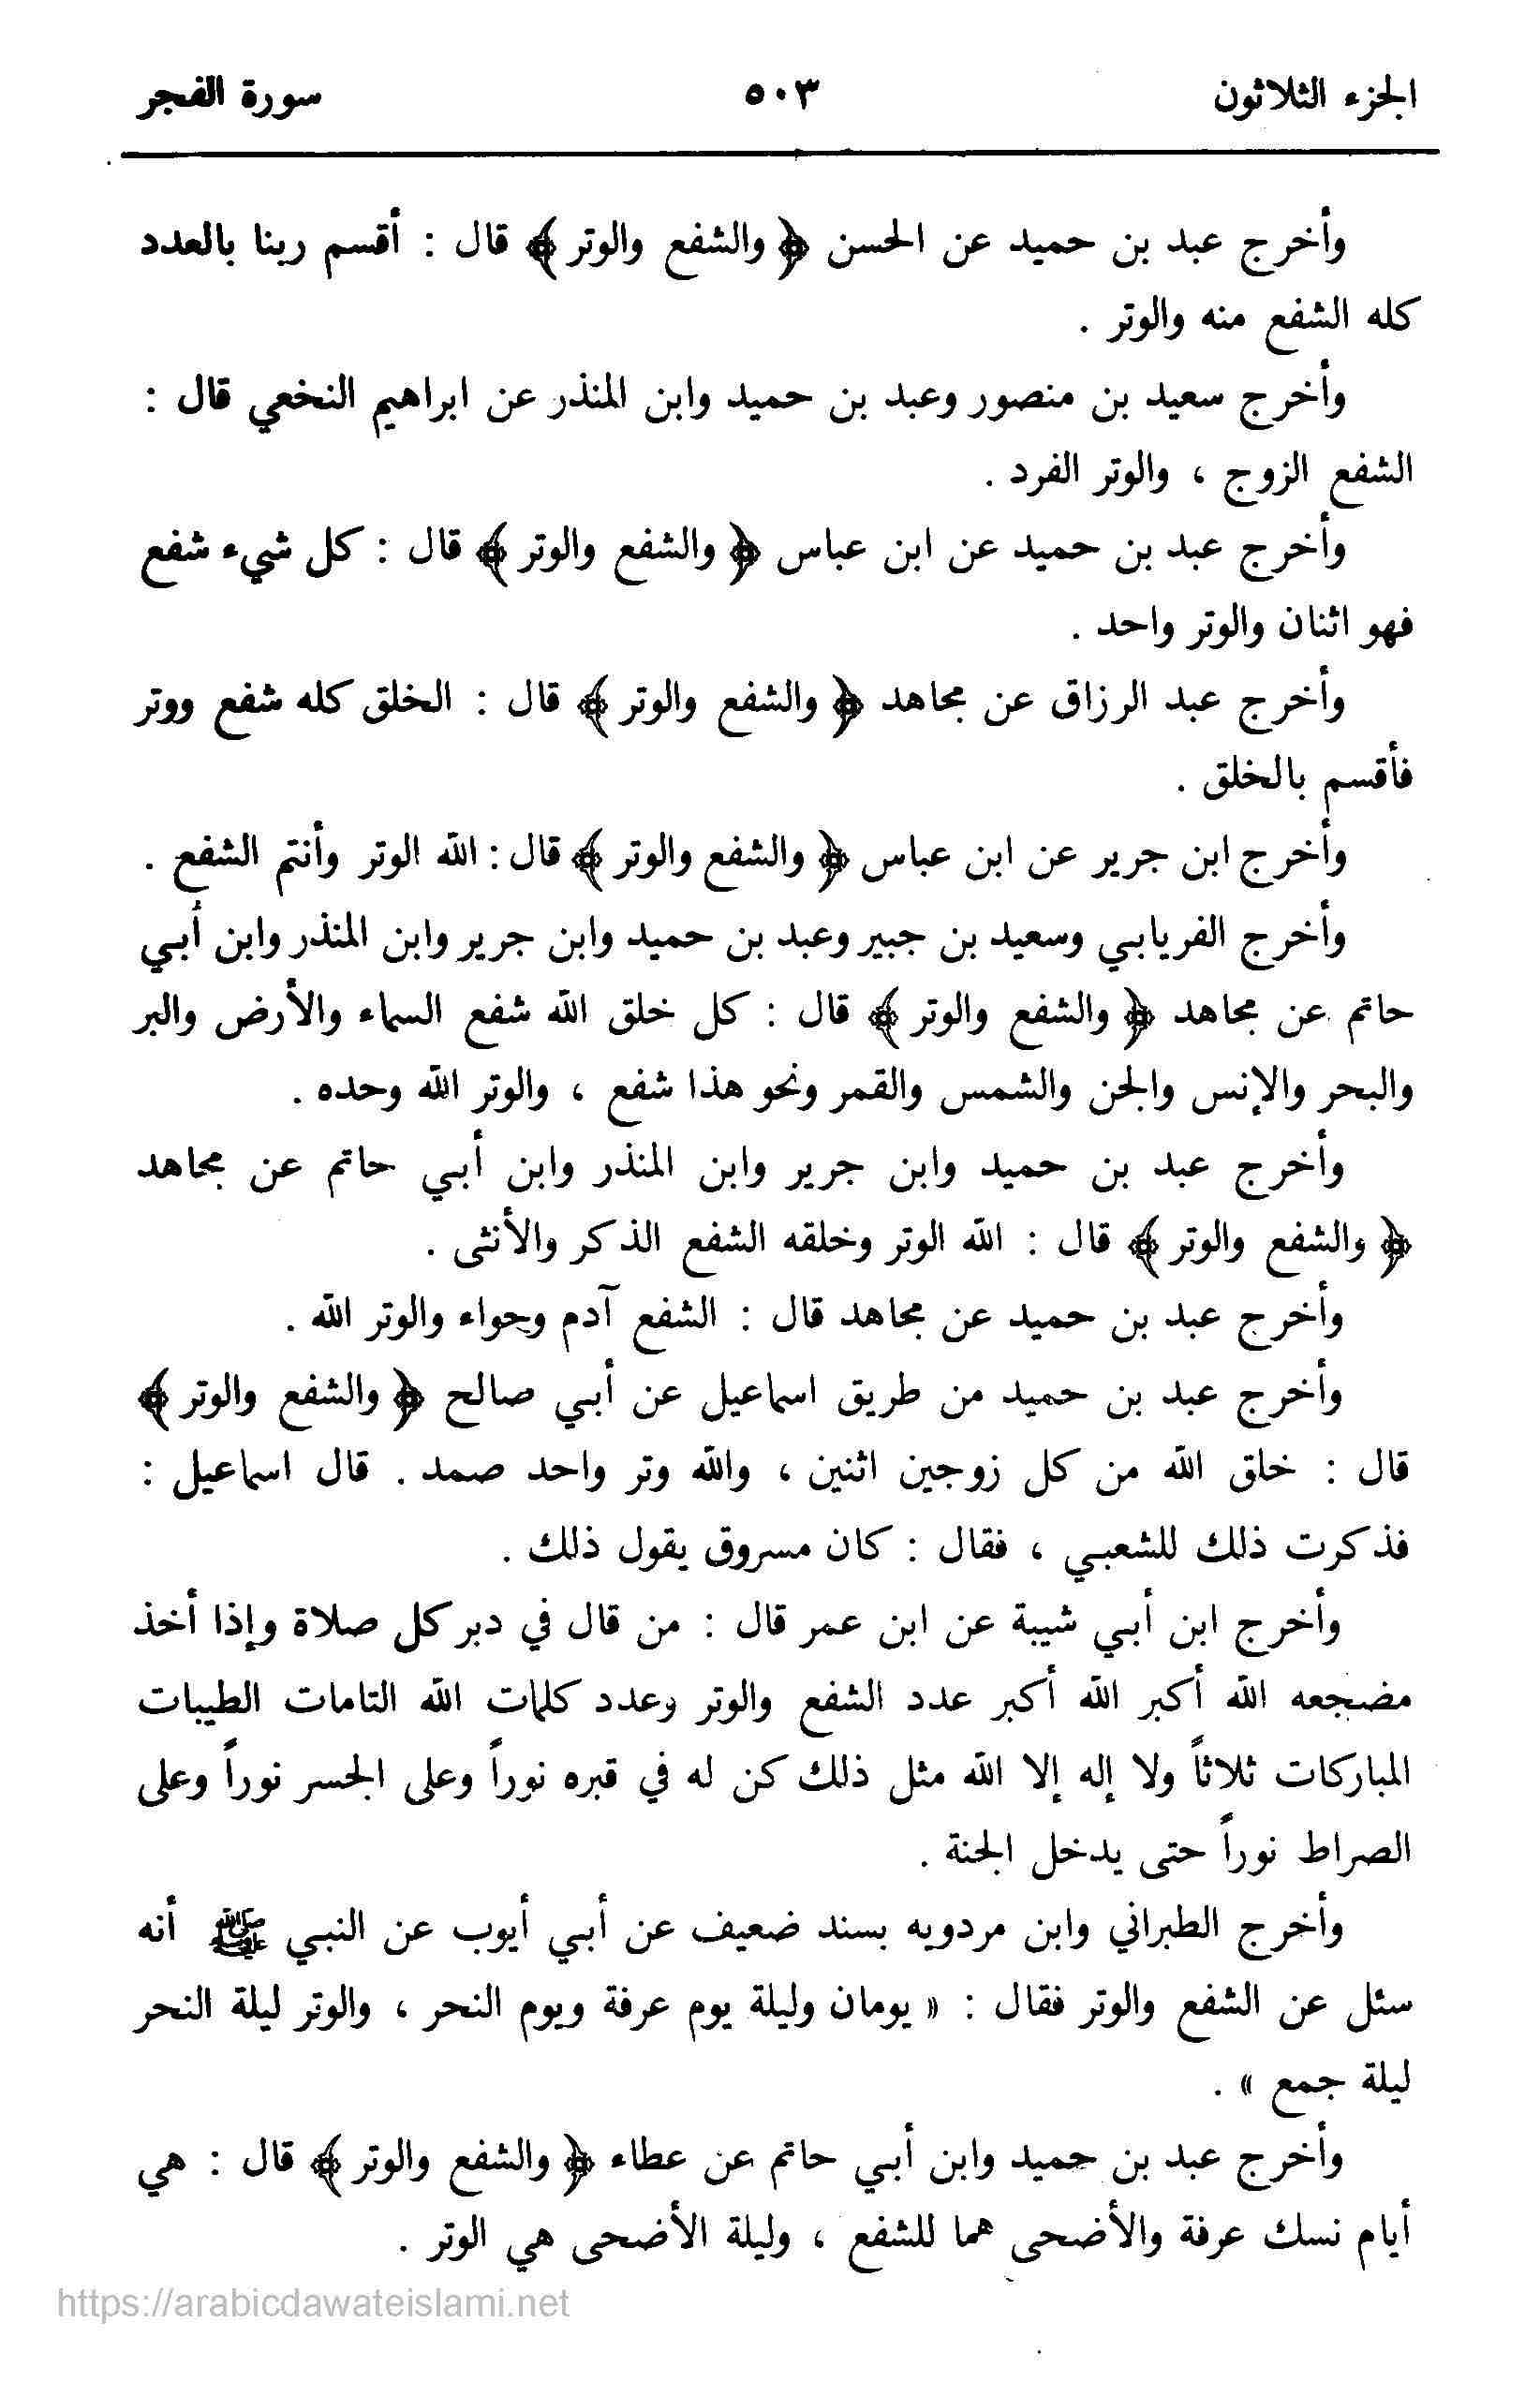 الجزء الثلاثون ٥٠٣ سورة الفجر
وأخرج عبد بن حميد عن الحسن ﴿ والشفع والوتر ﴾ قال : أقسم ربنا بالعدد
كله الشفع منه والوتر .
وأخرج سعيد بن منصور وعبد بن حميد وابن المنذر عن ابراهيم النخعي قال :
الشفع الزوج ، والوتر الفرد .
وأخرج عبد بن حميد عن ابن عباس ﴿ والشفع والوتر ﴾ قال : كل شيء شفع
فهو اثنان والوتر واحد .
وأخرج عبد الرزاق عن مجاهد ﴿ والشفع والوتر ﴾ قال : الخلق كله شفع ووتر
فأقسم بالخلق .
وأخرج ابن جرير عن ابن عباس ﴿ والشفع والوتر ﴾ قال : الله الوتر وأنتم الشفع .
وأخرج الفريابي وسعيد بن جبير وعبد بن حميد وابن جرير وابن المنذر وابن أبي
حاتم عن مجاهد ﴿ والشفع والوتر ﴾ قال : كل خلق الله شفع السماء والأرض والبر
والبحر والإنس والجن والشمس والقمر ونحو هذا شفع ، والوتر الله وحده .
وأخرج عبد بن حميد وابن جرير وابن المنذر وابن أبي حاتم عن مجاهد
﴿ والشفع والوتر ﴾ قال : الله الوتر وخلقه الشفع الذكر والأنثى .
وأخرج عبد بن حميد عن مجاهد قال : الشفع آدم وحواء والوتر الله .
وأخرج عبد بن حميد من طريق اسماعيل عن أبي صالح ﴿ والشفع والوتر ﴾
قال : خلق الله من كل زوجين اثنين ، والله وتر واحد صمد . قال اسماعيل :
فذكرت ذلك للشعبي ، فقال : كان مسروق يقول ذلك .
وأخرج ابن أبي شيبة عن ابن عمر قال : من قال في دبر كل صلاة وإذا أخذ
مضجعه الله أكبر الله أكبر عدد الشفع والوتر وعدد كلمات الله التامات الطيبات
المباركات ثلاثاً ولا إله إلا الله مثل ذلك كن له في قبره نوراً وعلى الجسر نوراً وعلى
الصراط نوراً حتى يدخل الجنة .
وأخرج الطبراني وابن مردويه بسند ضعيف عن أبي أيوب عن النبي ﷺ أنه
سئل عن الشفع والوتر فقال : « يومان وليلة يوم عرفة ويوم النحر ، والوتر ليلة النحر
ليلة جمع » .
وأخرج عبد بن حميد وابن أبي حاتم عن عطاء ﴿ والشفع والوتر ﴾ قال : هي
أيام نسك عرفة والأضحى هما للشفع ، وليلة الأضحى هي الوتر .
https://arabicdawateislami.net